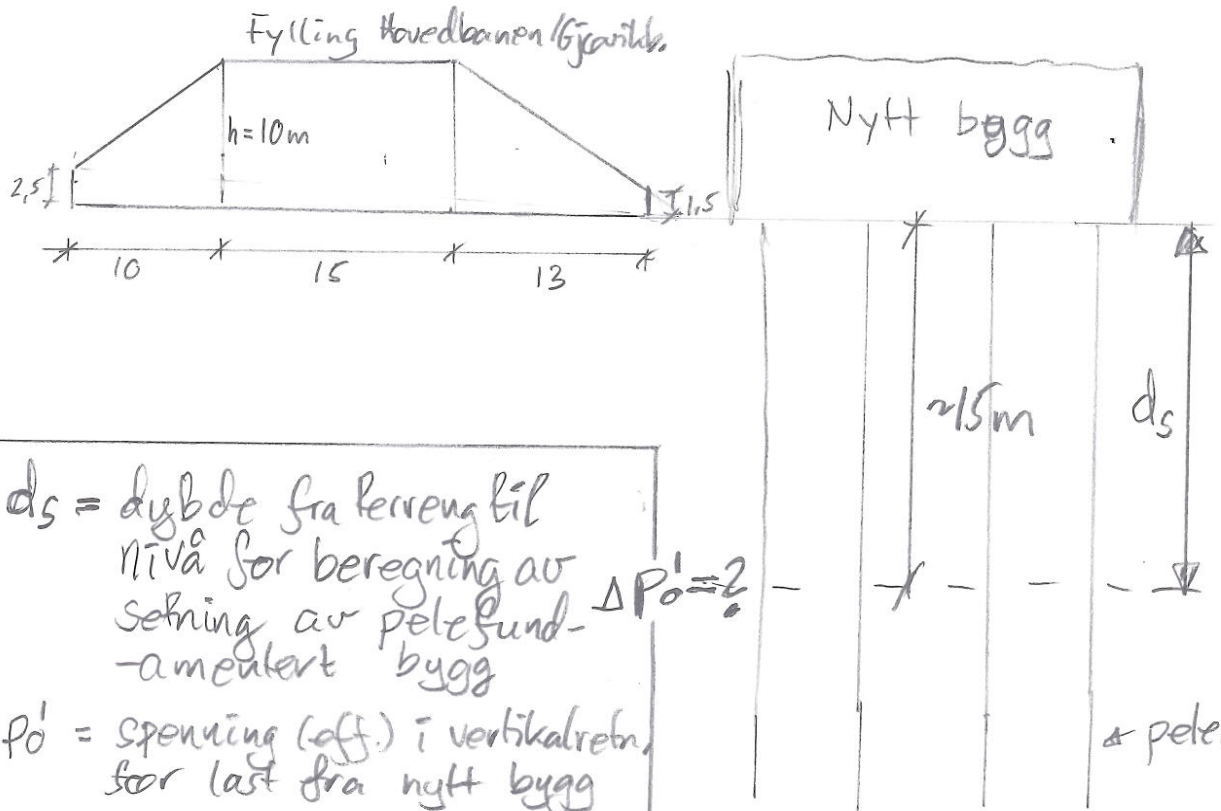 Fylling Hovedbanen/Gjøvikb.
h=10m
2,5
1,5
10
15
13
Nytt bygg
~15m
ds
ds = dybde fra terreng til
nivå for beregning av
setning av pelefund-
-amentert bygg
Δpo'=?
po' = spenning (eff.) i vertikalretn.
før last fra nytt bygg
pele